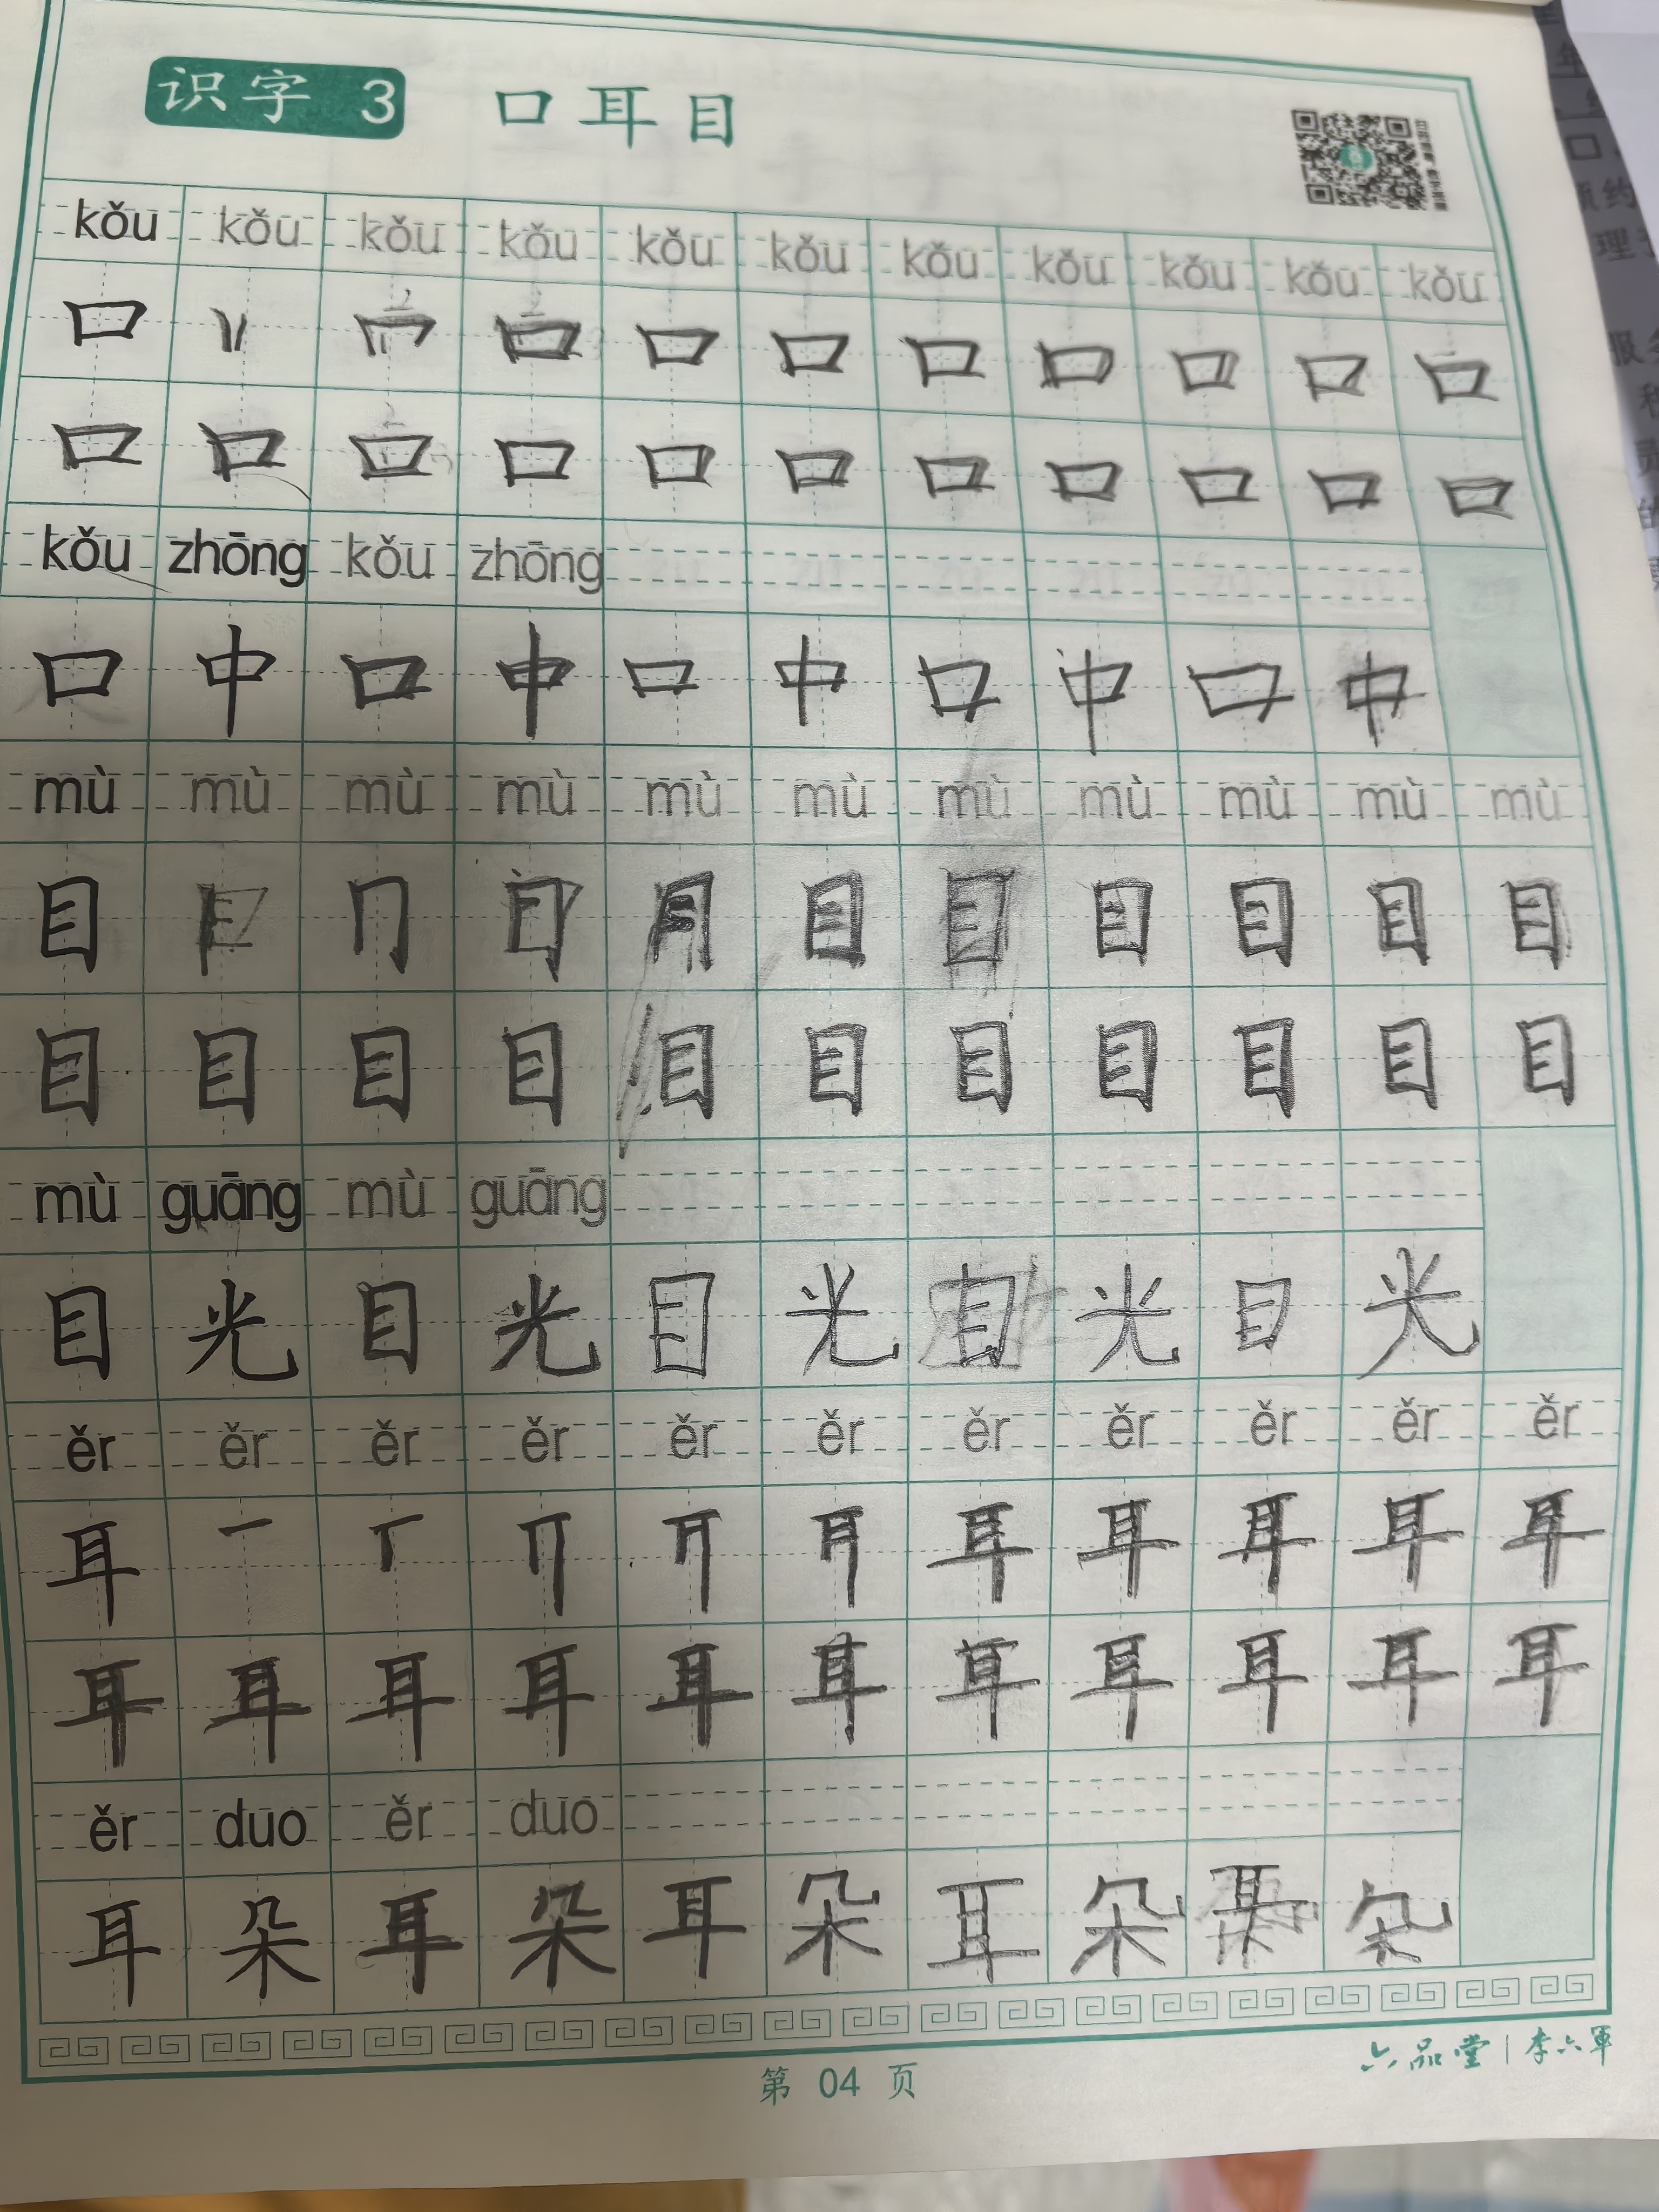 识字 3 口耳目
kǒu kǒu kǒu kǒu kǒu kǒu kǒu kǒu kǒu kǒu kǒu
口 口 口 口 口 口 口 口 口
口 口 口 口 口 口 口 口 口 口 口
kǒu zhōng kǒu zhōng
口 中 口 中 口 中 口 中 口 中
mù mù mù mù mù mù mù mù mù mù mù
目 冂 目 目 目 目 目 目
目 目 目 目 目 目 目 目 目 目 目
mù guāng mù guāng
目 光 目 光 目 光 目 光 目 光
ěr ěr ěr ěr ěr ěr ěr ěr ěr ěr ěr
耳 一 耳 耳 耳 耳 耳
耳 耳 耳 耳 耳 耳 耳 耳 耳 耳 耳
ěr duo ěr duo
耳 朵 耳 朵 耳 朵 耳 朵 耳 朵
第 04 页
六品堂|李六军